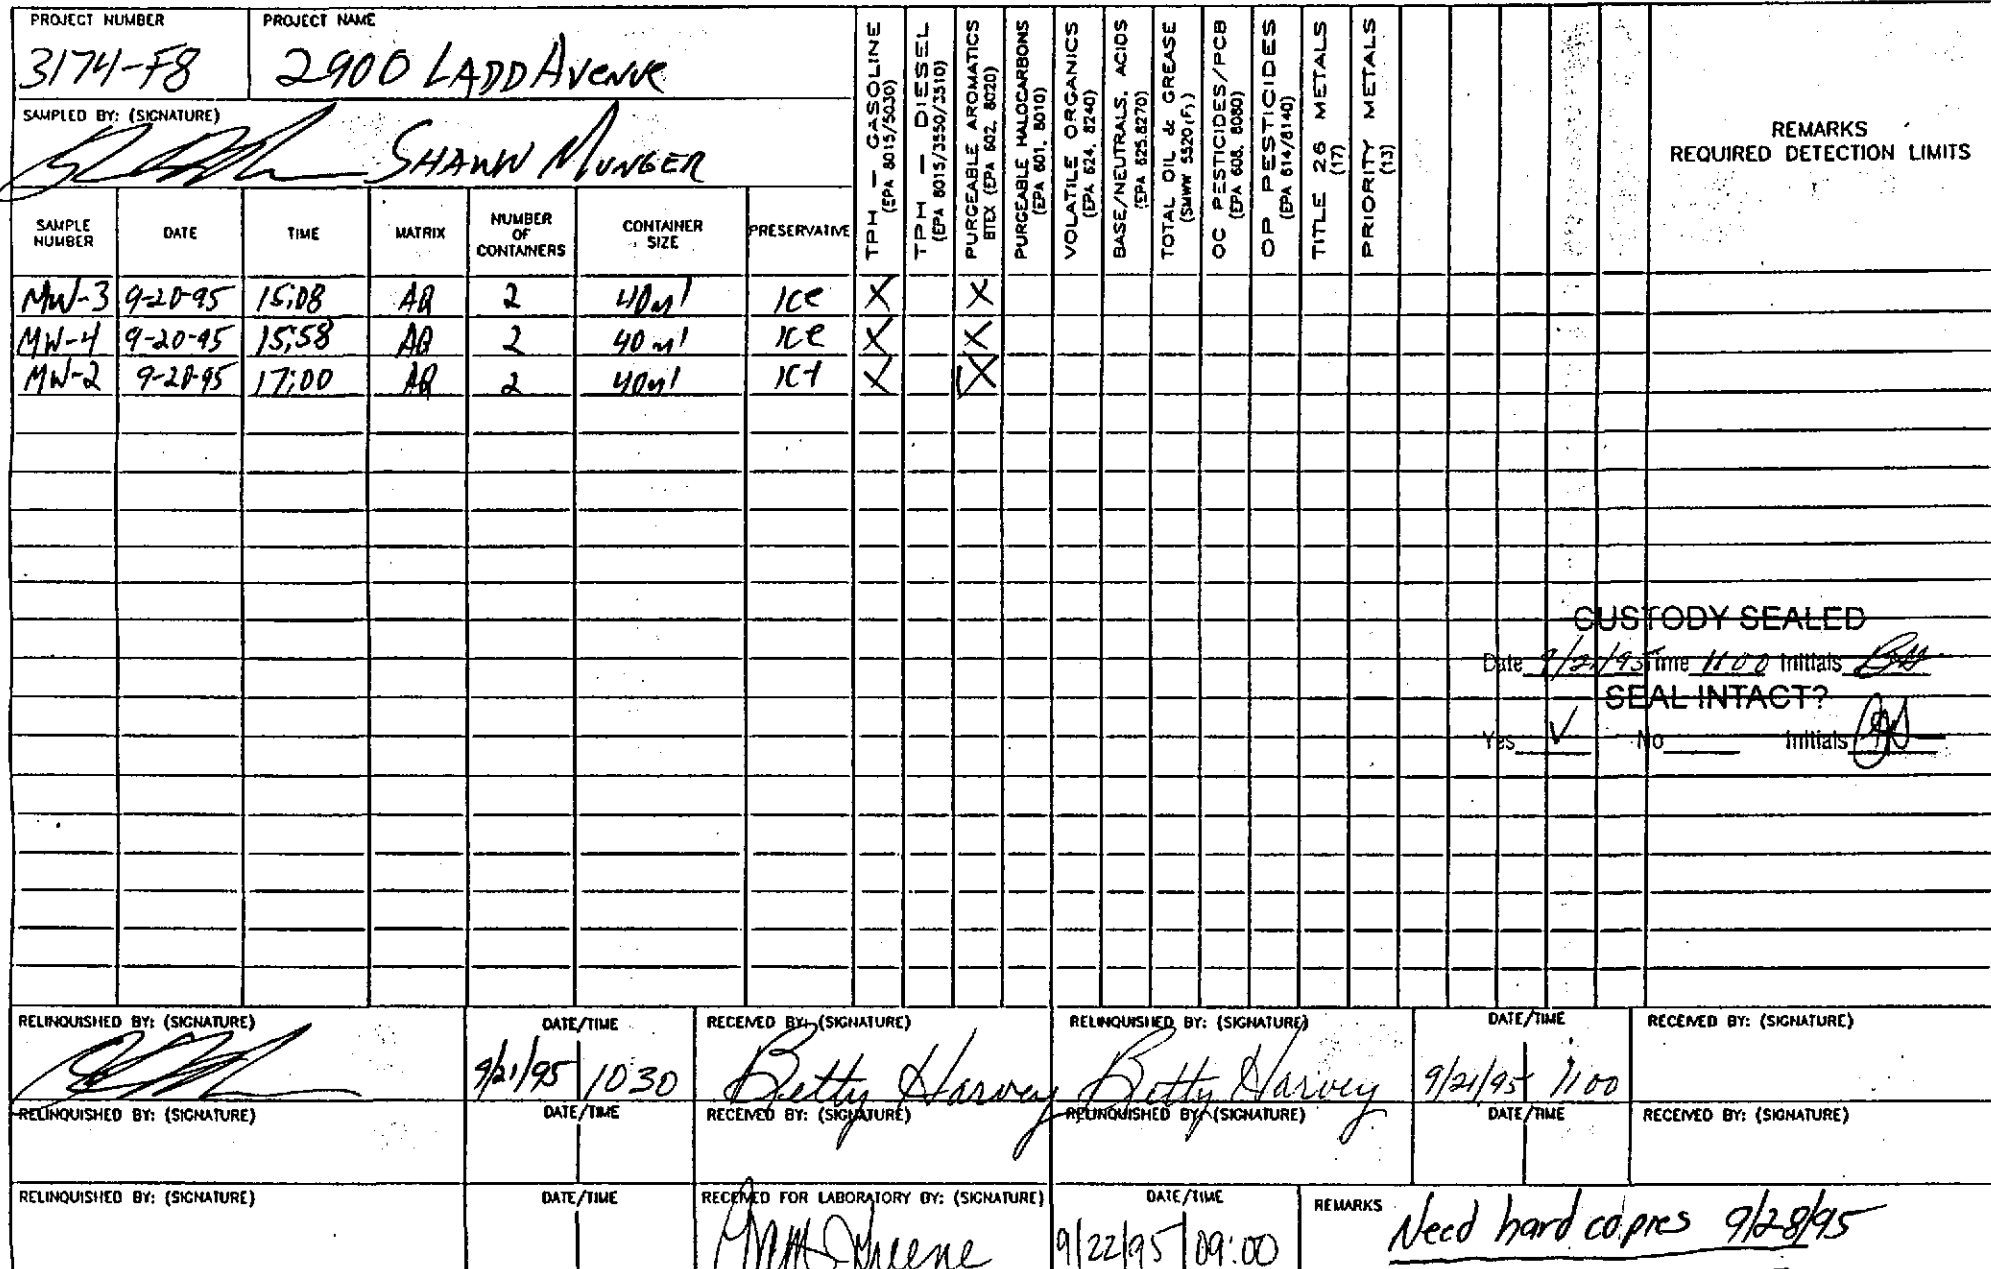 PROJECT NUMBER
3174-F8
PROJECT NAME
2900 LADD AVENUE
SAMPLED BY: (SIGNATURE)
SHAWN MUNGER
SAMPLE NUMBER
DATE
TIME
MATRIX
NUMBER OF CONTAINERS
CONTAINER SIZE
PRESERVATIVE
TPH — GASOLINE
(EPA 8015/5030)
TPH — DIESEL
(EPA 8015/3550/3510)
PURGEABLE AROMATICS
BTEX (EPA 602, 8020)
PURGEABLE HALOCARBONS
(EPA 601, 8010)
VOLATILE ORGANICS
(EPA 624, 8240)
BASE/NEUTRALS, ACIDS
(EPA 625,8270)
TOTAL OIL & GREASE
(SMWW 5520 (F),)
OC PESTICIDES/PCB
(EPA 608, 8080)
OP PESTICIDES
(EPA 614/8140)
TITLE 26 METALS
(17)
PRIORITY METALS
(13)
REMARKS
REQUIRED DETECTION LIMITS
MW-3 9-20-95 15:08 AQ 2 40ml ICe X X
MW-4 9-20-95 15:58 AQ 2 40ml ICe X X
MW-2 9-20-95 17:00 AQ 2 40ml ICE X X
CUSTODY SEALED
Date 9/21/95 Time 1100 Initials BH
SEAL INTACT?
Yes √ No Initials
RELINQUISHED BY: (SIGNATURE)
DATE/TIME
9/21/95 1030
RECEIVED BY: (SIGNATURE)
Betty Harvey
RELINQUISHED BY: (SIGNATURE)
Betty Harvey
DATE/TIME
9/21/95 1100
RECEIVED BY: (SIGNATURE)
RELINQUISHED BY: (SIGNATURE)
DATE/TIME
RECEIVED BY: (SIGNATURE)
RELINQUISHED BY: (SIGNATURE)
DATE/TIME
RECEIVED BY: (SIGNATURE)
RELINQUISHED BY: (SIGNATURE)
DATE/TIME
RECEIVED FOR LABORATORY BY: (SIGNATURE)
Greene
DATE/TIME
9/22/95 09:00
REMARKS
Need hard copies 9/28/95